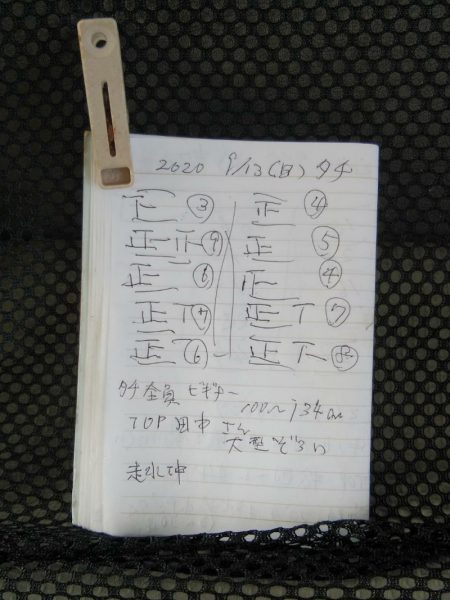 2020 9/13(日) タチ
下 ③ 正 ④
正 正 ⑨ 正 ⑤
正 ⑥ 正 ④
正 T ⑦ 正 T ⑦
正 T ⑥ 正 下 ⑧
タチ 全員 ビギナー
100~134cm
TOP 田中 さん
大型ぞろい
走水沖